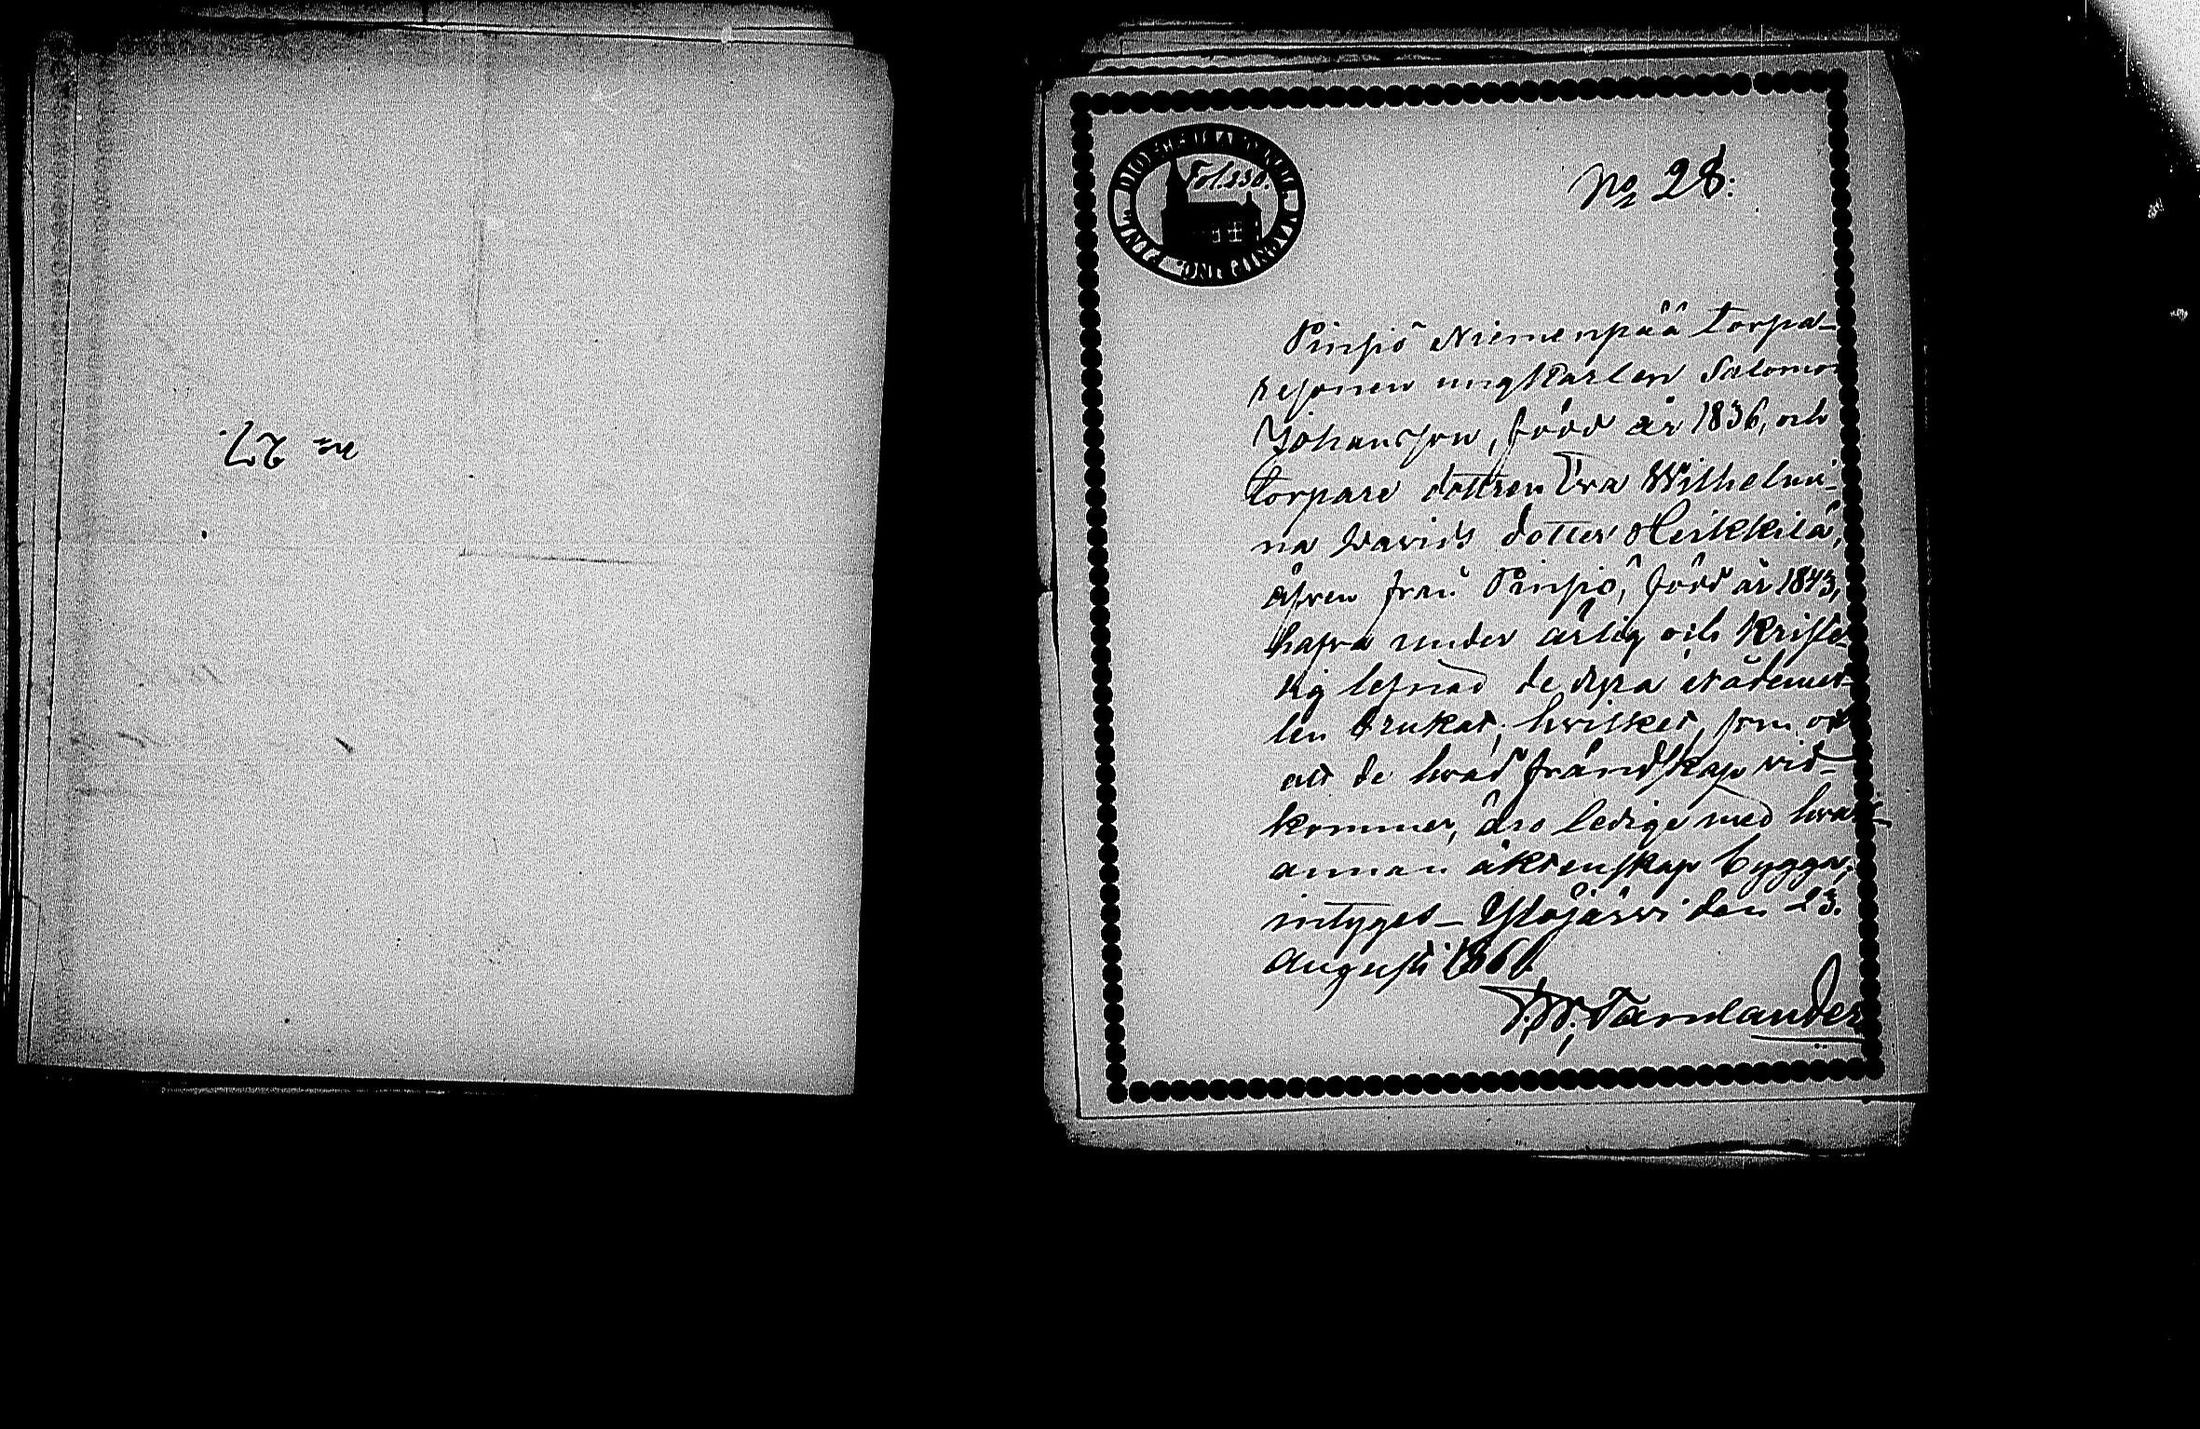 No 27.
Fol. 330.
No 28:
Pinsiö Niemenpää torpa-
resonen ungkarlen Salomon
Johansson, född år 1836, och
torpare dottren Eva Wilhelmi-
na Davids dotter Heikkilä,
äfven från Pinsiö, född år 1843,
hafva under ärlig och kriste-
lig lefnad de dyra nådemed-
len brukat; hvilket, som ock
att de hvad frändskap vid-
kommer, äro ledige med hvar-
annan äktenskap bygga,
intygas_ Ylöjärvi den 23.
Augusti 186
Tarnlander